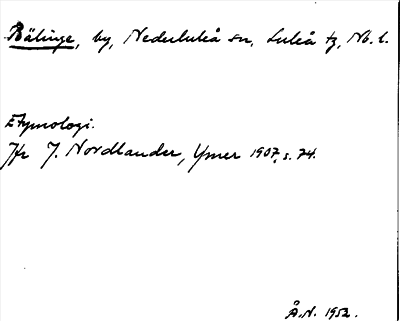 Bälinge, by, Nederluleå sn, Luleå tg, Nb. l.
Etymologi.
Jfr J. Nordlander, Ymer 1907, s. 74.
Å.N. 1952.